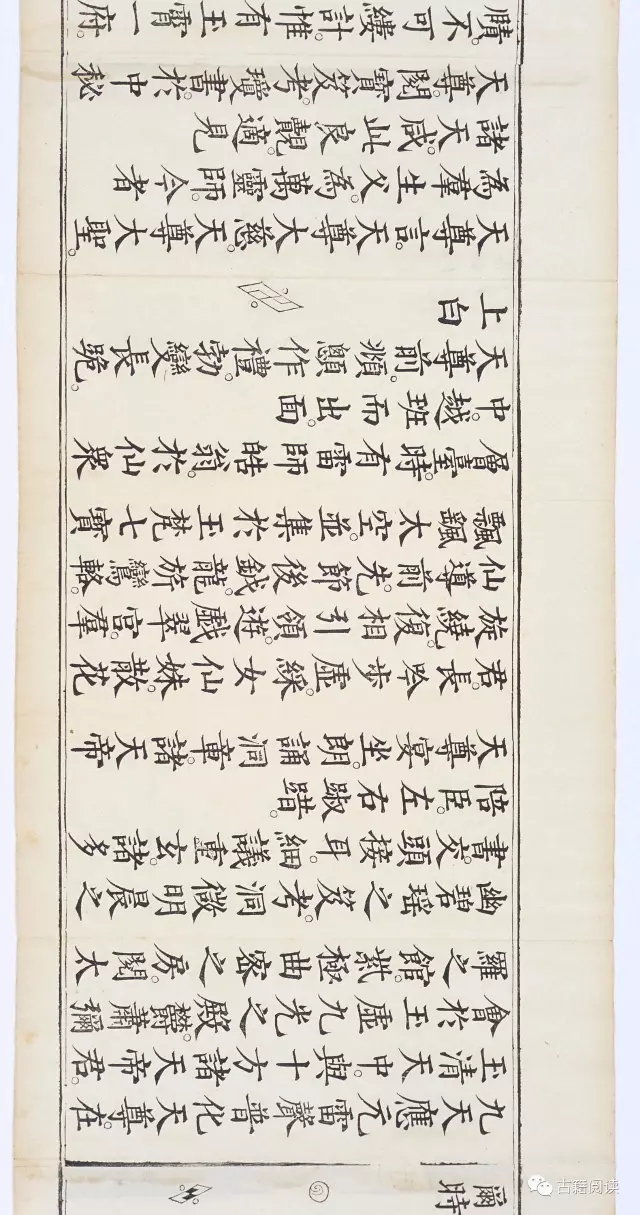 爾時
九天應元雷聲普化天尊在
玉清天中。與十方諸天帝君。
會於玉虛九光之殿。鬱蕭彌
羅之館。紫極曲密之房。閱太
幽碧瑤之笈。考洞微明晨之
書。交頭接耳。細議重玄。諸多
陪臣。左右踧踖。
天尊宴坐。朗誦洞章。諸天帝
君。長吟步虛。綵女仙姝。散花
旋繞。復相引領。遊戲翠宮。羣
仙導前。先節後鉞。龍旂鸞輅。
飄颻太空。並集於玉梵七寶
層臺。時有雷師皓翁。於仙眾
中。越班而出。面
天尊前。頫顖作禮。勃變長跪。
上白
天尊言。天尊大慈。天尊大聖。
為羣生父。為萬靈師。今者
諸天咸此良覿。適見
天尊。閱寶笈。考瓊書。於中秘
賾。不可縷計。惟有玉霄一府。
古籍阅读